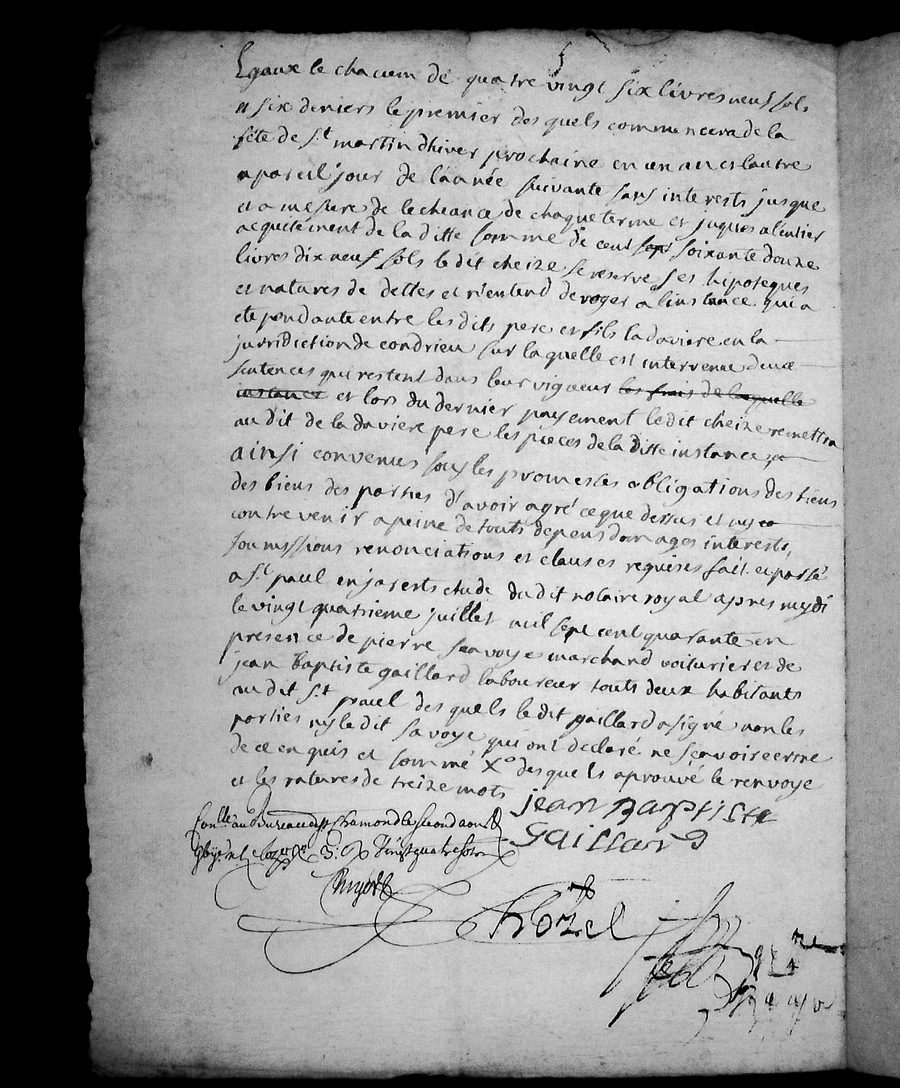 Egaux le chacum de quatre vingt six livres neuf sols
et six deniers le premier des quels commencera de la
fête de St martin dhiver prochaine en un an et lautre
apareil jour de lanneé suivante sans interests jusque
et a mesure de lecheance de chaque terme et juques alentier
acquitement de la ditte somme de cent sept soixante douze
livres dix neuf sols le dit cheize se reserve ses hipoteques
et natures de dettes et n'entend deroger a linstance qui a
ete pendante entre les dits pere et fils ladaviere en la
juridiction de condrieu sur laquelle est intervenue deux
sentences qui restent dans leur vigueur les frais de laquelle
instance et lors du dernier payement le dit cheize remettra
au dit de ladaviere pere les pieces de la Ditte instance
ainsi convenus sous les promesses obligations des biens
des biens des parties d'avoir agré ce que dessus et ny
contrevenir a peine de touts depens domages interests,
soumissions renonciations et clauses requises fait et passé
a St paul en jarest etude du dit notaire royal apres mydi
le vingt quatrieme juillet mil sept cent quarante en
presence de pierre savoye marchand voiturier et de
jean Baptiste gaillard laboureur touts deux habitants
au dit St paul des quels le dit gaillard a signé non les
parties ny le dit savoye qui ont declaré ne sçavoir ecrire
de ce enquis et sommé Xo desquels aprouvé le renvoye
et les ratures de treize mots
jean Baptiste
Gaillard
Conlle au Bureau de St chamond le second aoust
vingt quatre sols
chozel